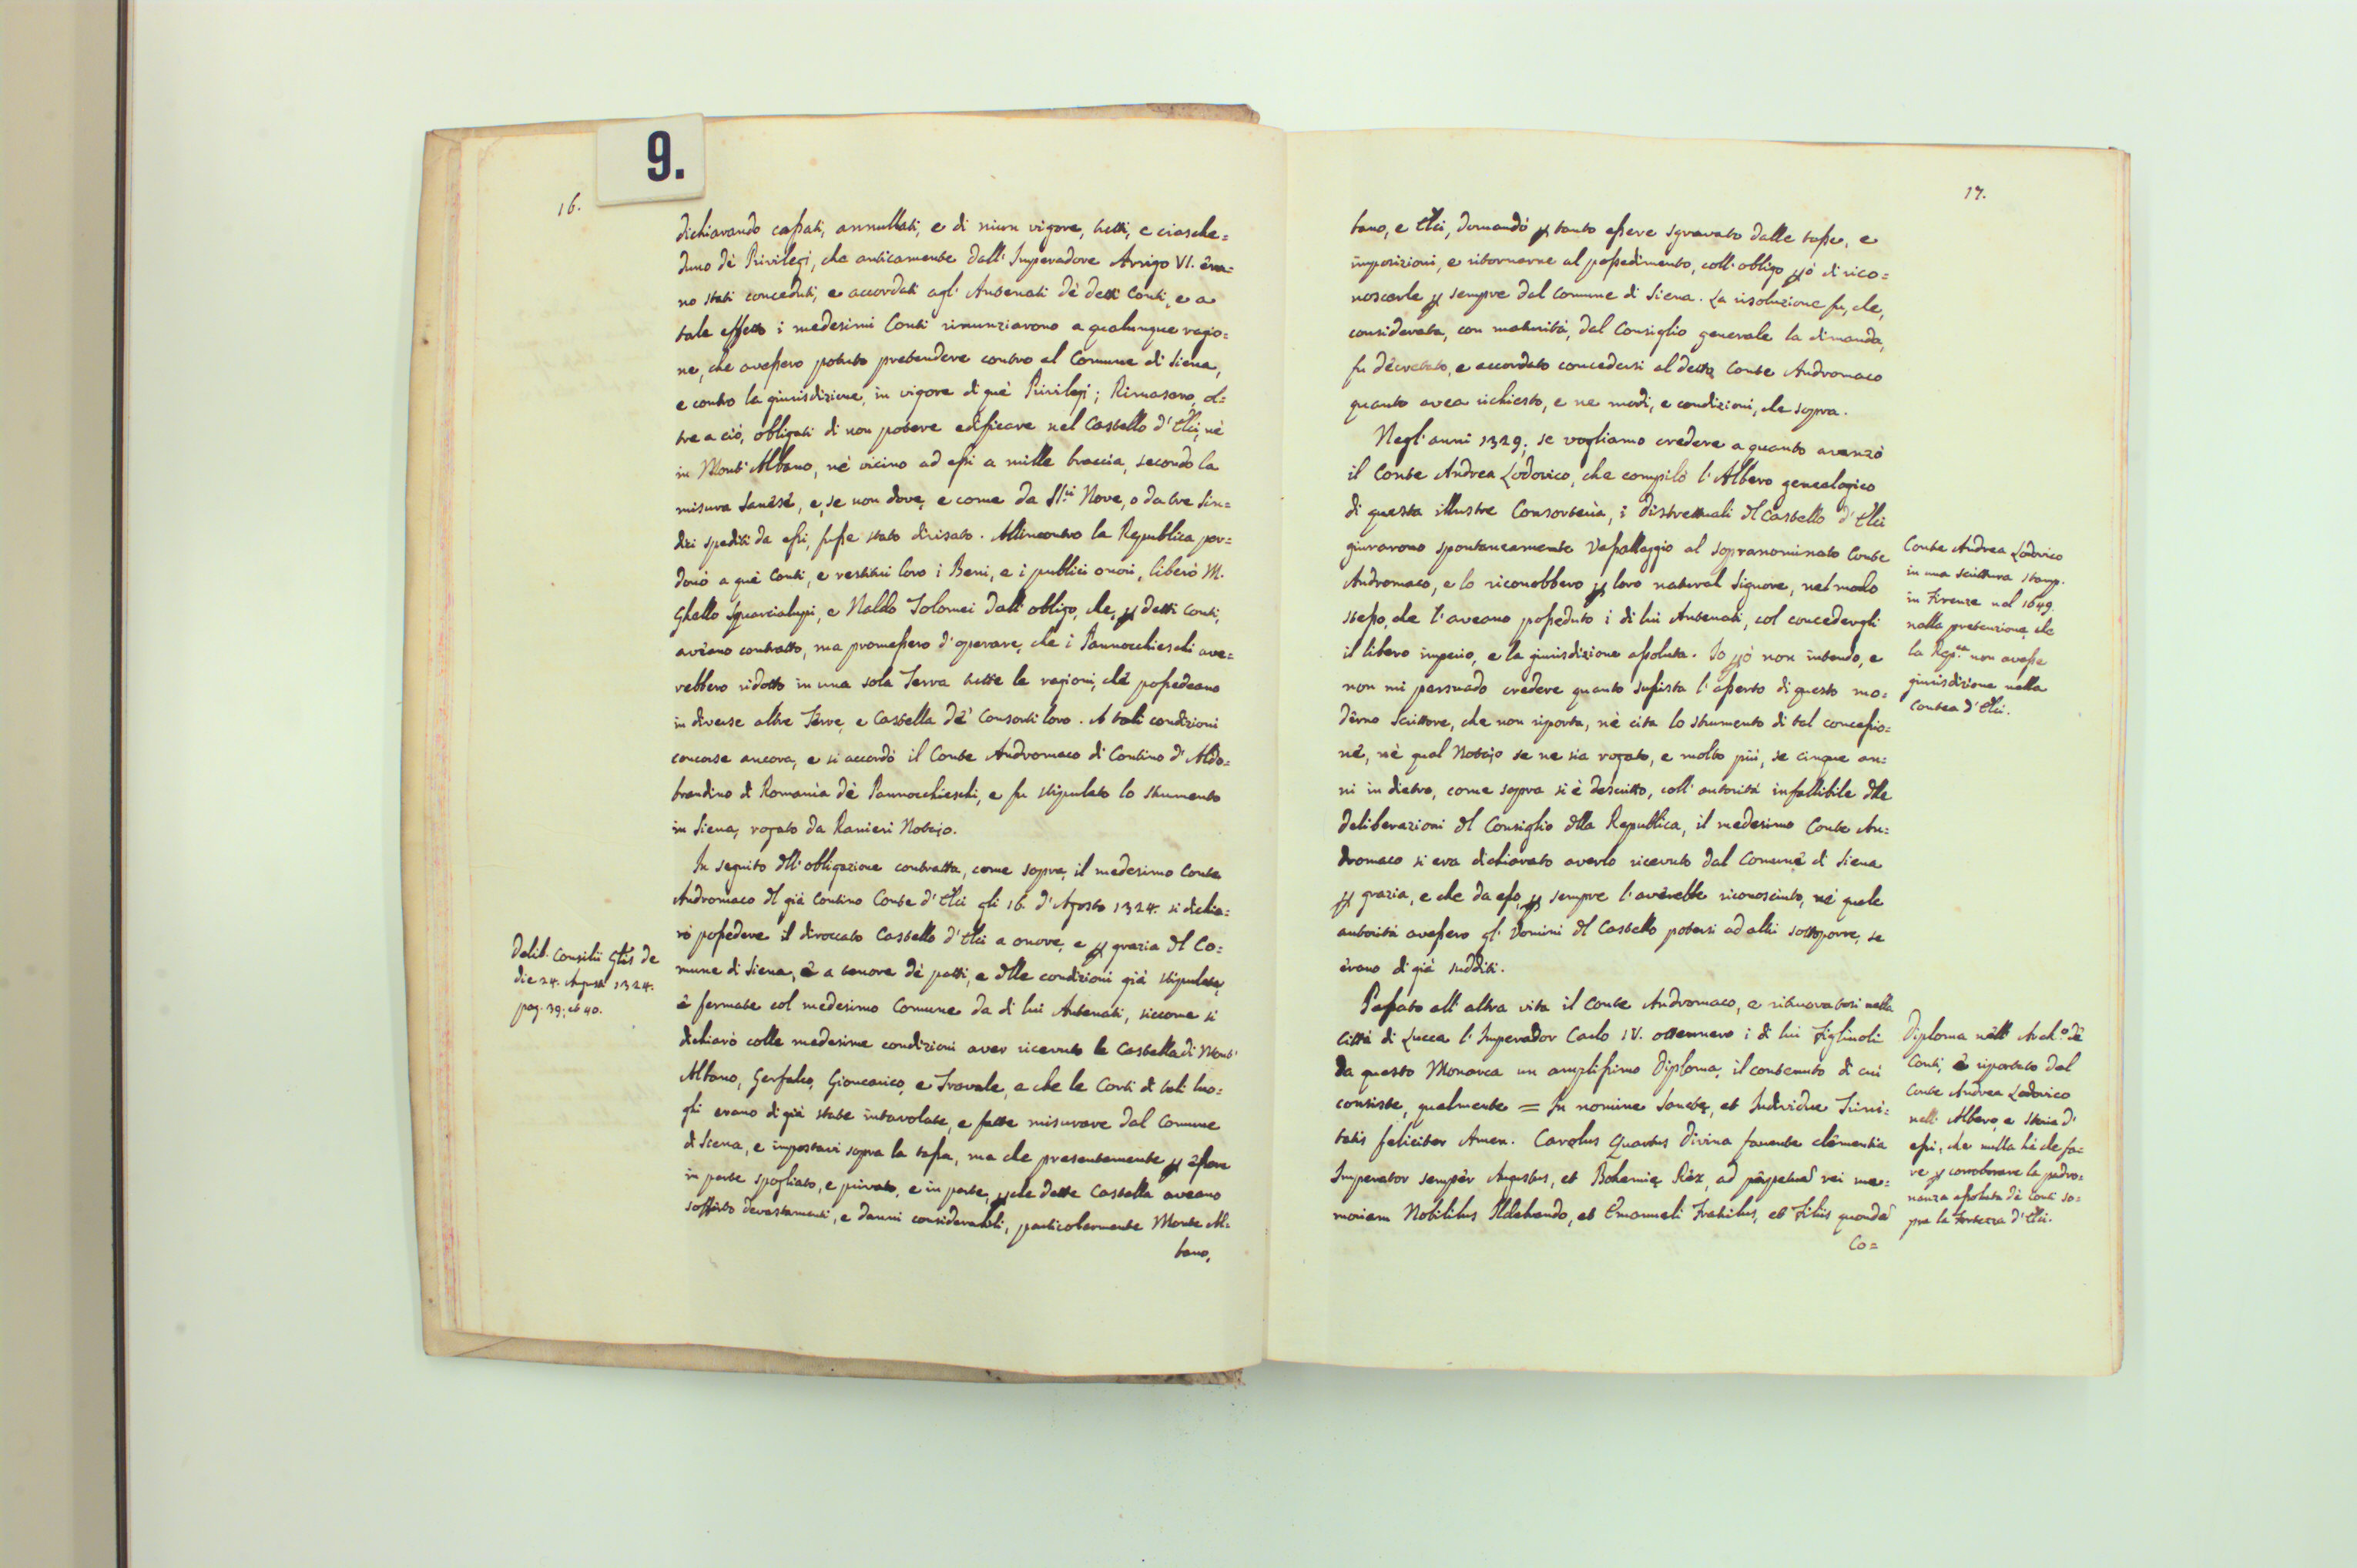 9.
16.
dichiarando cassati, annullati, e di niun vigore, tutti, e ciasche=
duno dè Privilegj, che anticamente dall' Imperadore Arrigo VI. èra=
no stati conceduti, e accordati agl' Antenati dè detti Conti, e a
tale effetto i medesimi Conti rinunziarono a qualunque ragio=
ne, che avessero potuto pretendere contro al Comune di Siena,
e contro la giurisdizione, in vigore di què Privilegj; Rimasero, ol=
tre a ciò, obligati di non potere edificare nel Castello d'Elci, nè
in Mont'Albano, nè vicino ad essi a mille braccia, secondo la
misura Sanese, e, se non dove, e come da SS.ri Nove, o da tre Sin=
dici spediti da essi, fusse stato divisato. All'incontro la Republica per=
donò a què Conti, e restituì loro i Beni, e i publici onori, liberò M.
Ghello Squarcialupi, e Naldo Tolomei dall'obligo, che, p detti Conti,
avèano contratto, ma promessero d'operare, che i Pannocchieschi avre=
rebbero ridotto in una sola Terra tutte le ragioni, che possedeano
in diverse altre Terre, e Castella de' Consorti loro. A tali condizioni
concorse ancora, e si accordò il Conte Andromaco di Contino d'Aldo=
brandino di Romanìa dè Pannocchieschi, e fu stipulato lo strumento
in Siena, rogato da Ranieri Notajo.
In seguito dell'obligazione contratta, come sopra, il medesimo Conte
Andromaco dl già Contino Conte d'Elci gli 16. d'Agosto 1324. si dichia=
rò possedere il diroccato Castello d'Elci a onore, e p grazia dl Co=
mune di Siena, e a tenore dè patti, e dlle condizioni già stipulate,
e fermate col medesimo Comune da di lui Antenati, siccome si
dichiarò colle medesime condizioni aver ricevuto le Castella di Mont'
Albano, Gerfalco, Giuncarico, e Travale, e che le Corti di tali luo=
ghi erano di già state intavolate, e fatte misurare dal Comune
di Siena, e impostavi sopra la tassa, ma che presentemente p essere
in parte spogliato, e privato, e in parte, pche dette Castella aveano
sofferto devastamenti, e danni considerabili, particolarmente Monte Al=
bano,
Delib. Consilii Glis de
die 24. Augusti 1324.
pag. 39. et 40.
17.
bano, e Elci, domandò p tanto essere sgravato dalle tasse, e
imposizioni, e ritornarne al possedimento, coll'obligo pò di rico=
noscerle p sempre dal Comune di Siena. La risoluzione fu, che,
considerata, con maturità, dal Consiglio generale la dimanda,
fu decretato, e accordato concedersi al detto Conte Andromaco
quanto avea richiesto, e ne modi, e condizioni, che sopra.
Negl'anni 1329, se vogliamo credere a quanto avanzò
il Conte Andrea Lodovico, che compilò l'Albero genealogico
di questa illustre Consorteria, i distrettuali dl Castello d'Elci
giurarono spontaneamente Vassallaggio al sopranominato Conte
Andromaco, e lo riconobbero p loro natural Signore, nel modo
stesso, che l'aveano posseduto i di lui Antenati, col concedergli
il libero imperio, e la giurisdizione assoluta. Io pò non intendo, e
non mi persuado credere quanto sussista l'asserto di questo mo=
derno Scrittore, che non riporta, nè cita lo strumento di tal concessio=
ne, nè qual Notajo se ne sia rogato, e molto più, se cinque an=
ni in dietro, come sopra si è descritto, coll'autorità infallibile dlle
deliberazioni dl Consiglio dlla Republica, il medesimo Conte An=
dromaco si era dichiarato averlo ricevuto dal Comune di Siena
p grazia, e che da esso, p sempre l'averebbe riconosciuto, nè quale
autorità avessero gl'Uomini dl Castello potersi ad altri sottoporre, se
èrano di già sudditi.
Passato all'altra vita il Conte Andromaco, e ritrovatosi nella
Città di Lucca l'Imperador Carlo IV. ottennero i di lui Figliuoli
da questo Monarca un amplissimo Diploma, il contenuto di cui
consiste, qualmente = In nomine Sanctę, et Individue Trini=
tatis feliciter Amen. Carolus Quartus divina favente clementia
Imperator semper Augustus, et Bohemię Rex, ad perpetuā rei me=
moriam Nobilibus Ildebrando, et Emanueli Fratribus, et Filiis quondā
Co=
Conte Andrea Lodovico
in una scrittura stamp.
in Firenze nel 1649.
nella pretenzione, che
la Rep.ca non avesse
giurisdizione nella
Contea d'Elci.
Diploma nell' Arch.o dè
Conti, è riportato dal
Conte Andrea Lodovico
nell' Albero, e Storia d'
essi, che nulla hà che fa=
re p corroborare la padro=
nanza assoluta dè Conti so=
pra la Fortezza d'Elci.